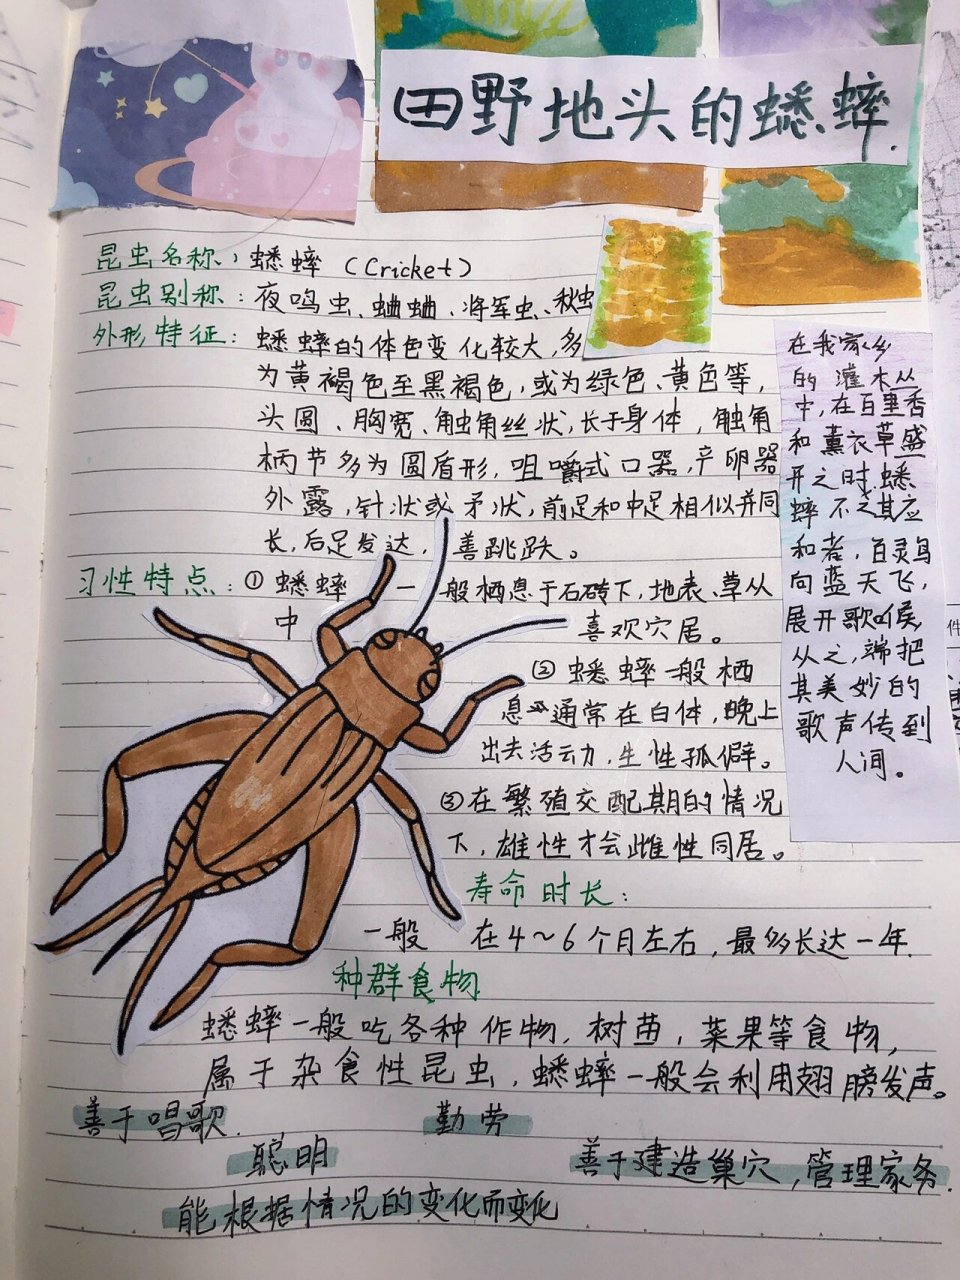 田野地头的蟋蟀.
昆虫名称：蟋蟀（Cricket）
昆虫别称：夜鸣虫、蛐蛐、将军虫、秋虫
外形特征：蟋蟀的体色变化较大，多
为黄褐色至黑褐色，或为绿色、黄色等，
头圆、胸宽、触角丝状，长于身体，触角
柄节多为圆盾形，咀嚼式口器，产卵器
外露，针状或矛状，前足和中足相似并同
长，后足发达，善跳跃。
习性特点：①蟋蟀一般栖息于石砖下，地表、草从
中 喜欢穴居。
②蟋蟀一般栖
息 通常在白体，晚上
出去活动，生性孤僻。
③在繁殖交配期的情况
下，雄性才会雌性同居。
寿命时长：
一般 在4～6个月左右，最多长达一年.
种群食物
蟋蟀一般吃各种作物，树苗，菜果等食物，
属于杂食性昆虫，蟋蟀一般会利用翅膀发声。
善于唱歌.
勤劳
聪明
善于建造巢穴，管理家务.
能根据情况的变化而变化
在我家乡
的灌木丛
中，在百里香
和薰衣草盛
开之时，蟋
蟀不乏其应
和者，百灵鸟
向蓝天飞，
展开歌喉，
从之，端把
其美妙的
歌声传到
人间。